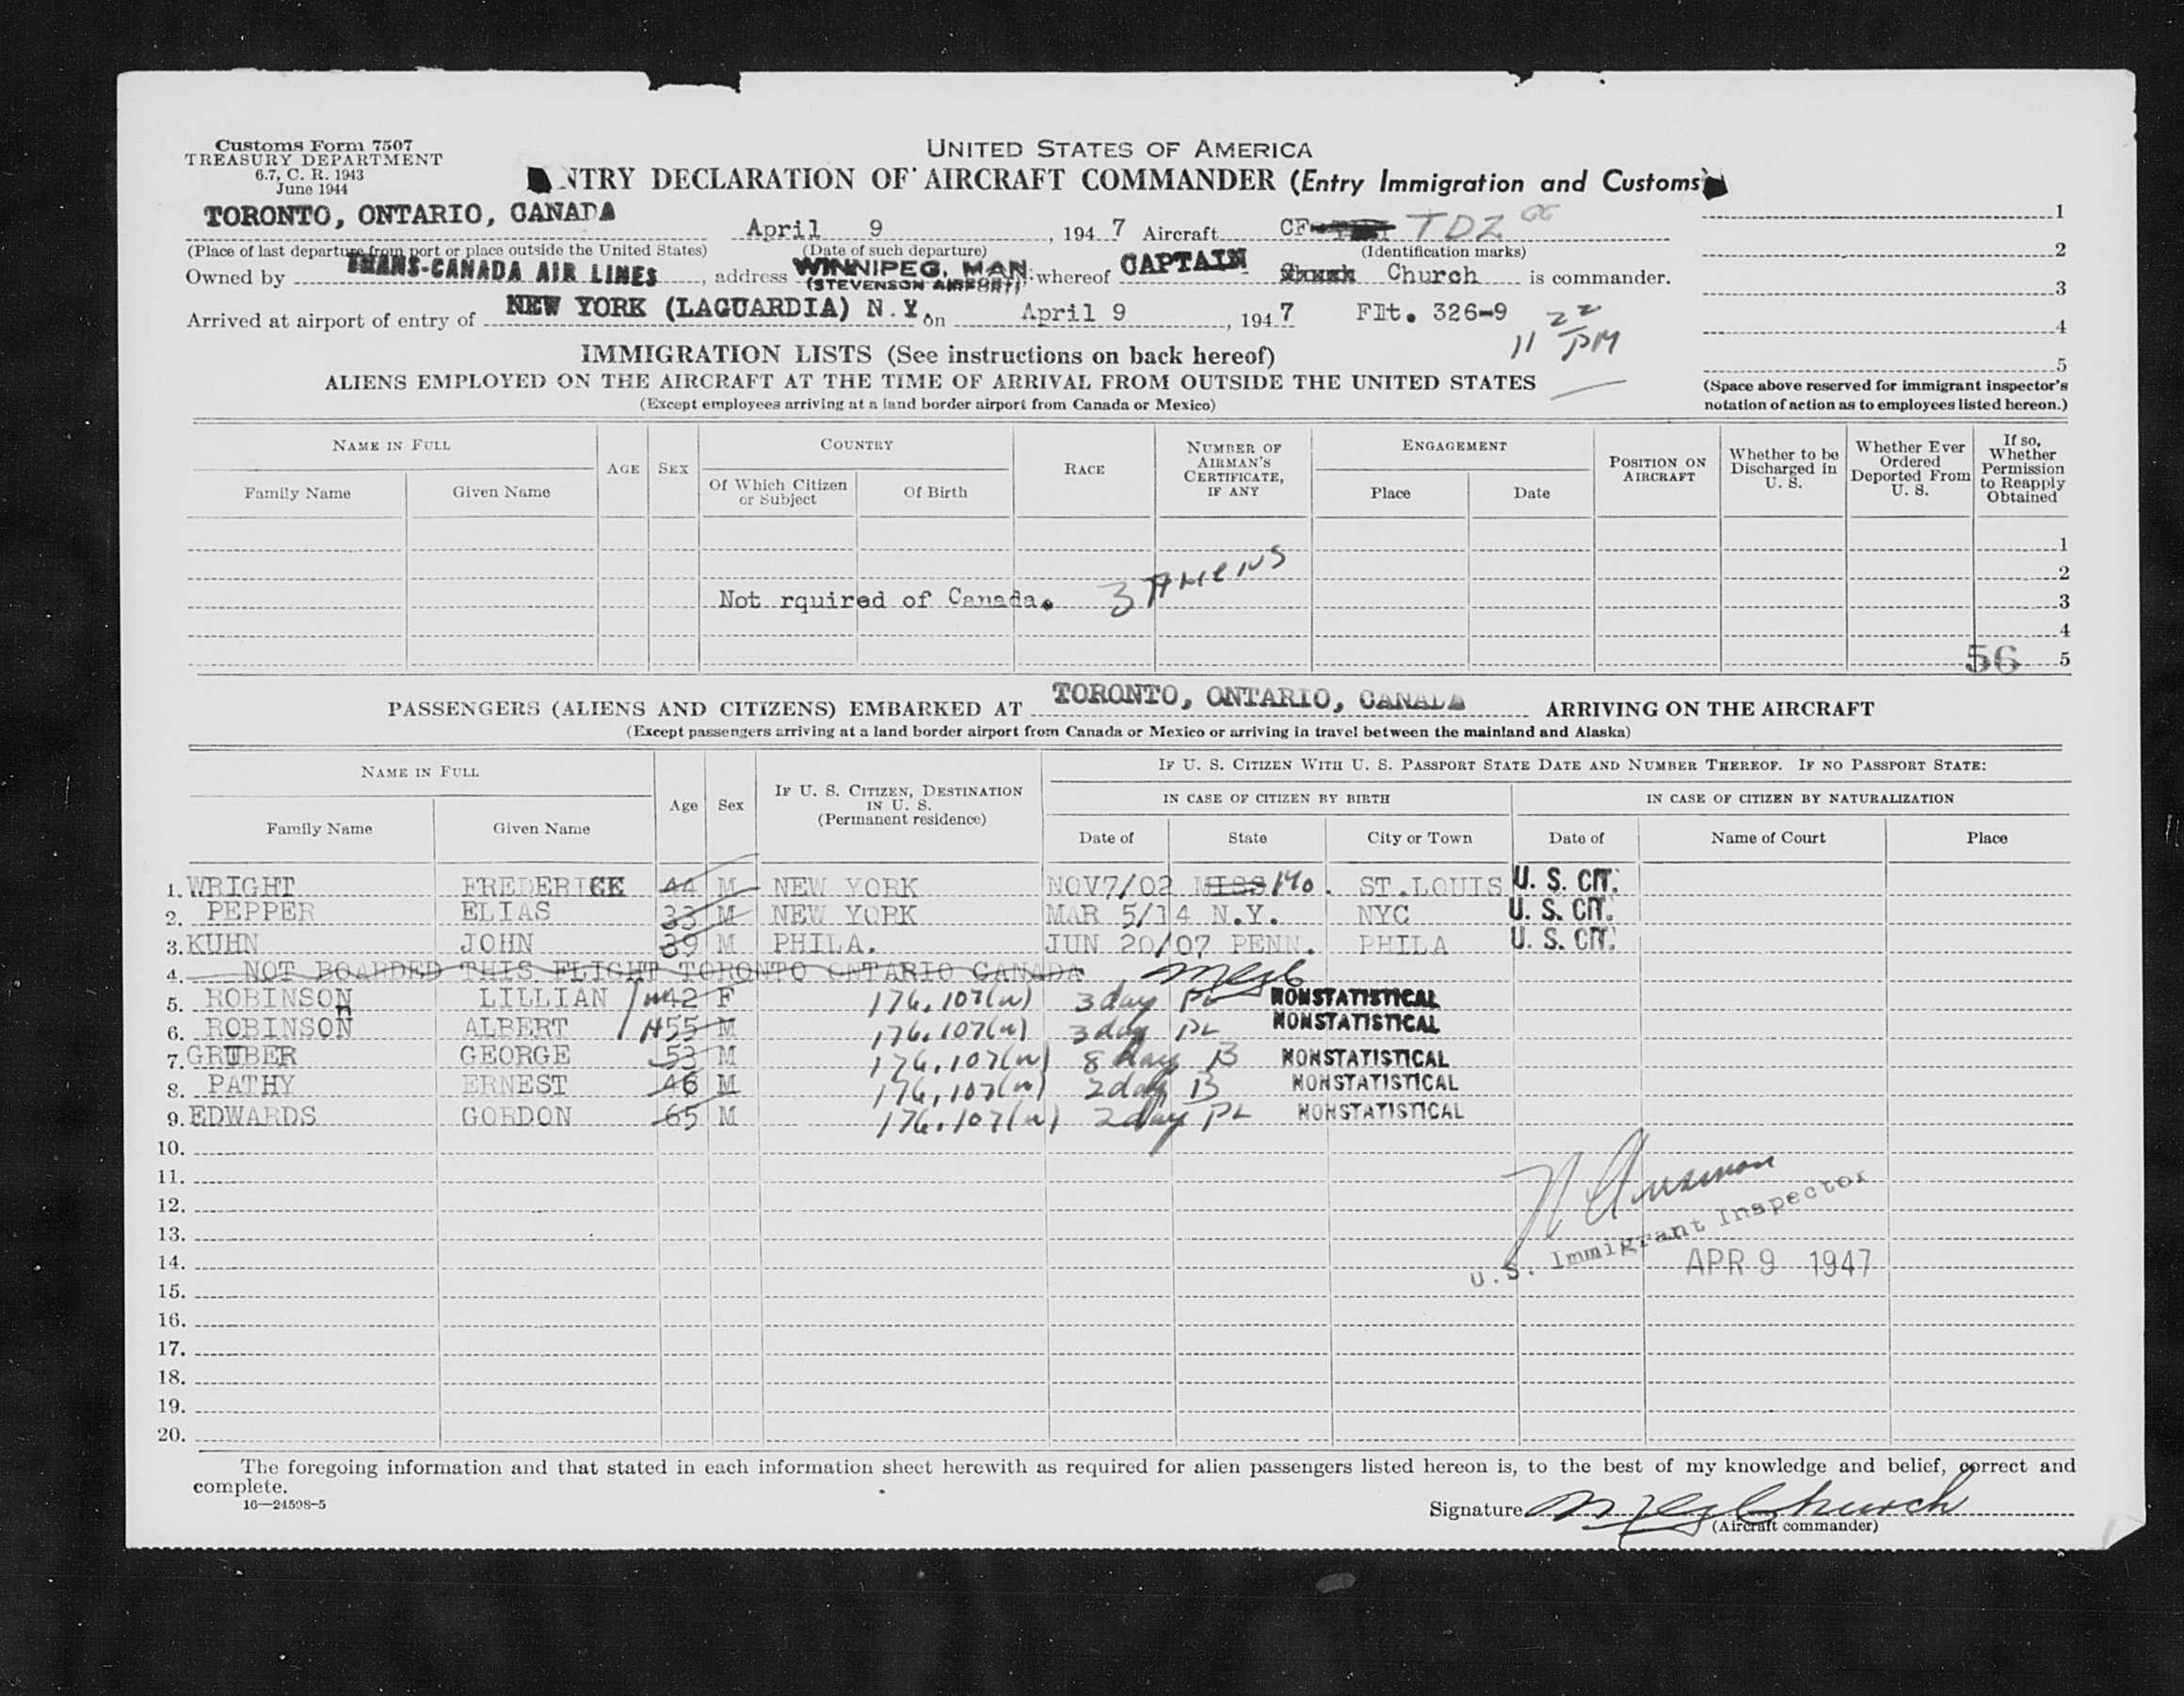 Customs Form 7507
TREASURY DEPARTMENT
6.7, C. R. 1943
June 1944
UNITED STATES OF AMERICA
NTRY DECLARATION OF AIRCRAFT COMMANDER (Entry Immigration and Customs)
TORONTO, ONTARIO, CANADA April 9, 1947 Aircraft CF- TDZ
(Place of last departure from port or place outside the United States) (Date of such departure) (Identification marks)
Owned by TRANS-CANADA AIR LINES, address WINNIPEG, MAN. (STEVENSON AIRPORT) whereof CAPTAIN Church is commander.
Arrived at airport of entry of NEW YORK (LAGUARDIA) N.Y. on April 9, 1947 Flt. 326-9 11 22 PM
1
2
3
4
5
(Space above reserved for immigrant inspector's
notation of action as to employees listed hereon.)
IMMIGRATION LISTS (See instructions on back hereof)
ALIENS EMPLOYED ON THE AIRCRAFT AT THE TIME OF ARRIVAL FROM OUTSIDE THE UNITED STATES
(Except employees arriving at a land border airport from Canada or Mexico)
NAME IN FULL
Family Name Given Name
AGE SEX
COUNTRY
Of Which Citizen or Subject Of Birth
RACE
NUMBER OF AIRMAN'S CERTIFICATE, IF ANY
ENGAGEMENT
Place Date
POSITION ON AIRCRAFT
Whether to be Discharged in U. S.
Whether Ever Ordered Deported From U. S.
If so, Whether Permission to Reapply Obtained
1
2
Not rquired of Canada. 3 3
4
56 5
PASSENGERS (ALIENS AND CITIZENS) EMBARKED AT TORONTO, ONTARIO, CANADA ARRIVING ON THE AIRCRAFT
(Except passengers arriving at a land border airport from Canada or Mexico or arriving in travel between the mainland and Alaska)
NAME IN FULL
Family Name Given Name
Age Sex
IF U. S. CITIZEN, DESTINATION IN U. S. (Permanent residence)
IF U. S. CITIZEN WITH U. S. PASSPORT STATE DATE AND NUMBER THEREOF. IF NO PASSPORT STATE:
IN CASE OF CITIZEN BY BIRTH IN CASE OF CITIZEN BY NATURALIZATION
Date of State City or Town Date of Name of Court Place
1. WRIGHT FREDERICK 44 M NEW YORK NOV7/02 MISS Mo. ST.LOUIS U. S. CIT.
2. PEPPER ELIAS 33 M NEW YORK MAR 5/14 N.Y. NYC U. S. CIT.
3. KUHN JOHN 39 M PHILA. JUN 20/07 PENN. PHILA U. S. CIT.
4. NOT BOARDED THIS FLIGHT TORONTO ONTARIO CANADA
5. ROBINSON LILLIAN 42 F 176.107(w) 3 day PL NONSTATISTICAL
6. ROBINSON ALBERT 55 M 176.107(w) 3 day PL NONSTATISTICAL
7. GRUBER GEORGE 53 M 176.107(w) 8 day B NONSTATISTICAL
8. PATHY ERNEST 46 M 176.107(w) 2 day B NONSTATISTICAL
9. EDWARDS GORDON 65 M 176.107(w) 2 day PL NONSTATISTICAL
10.
11.
12.
13.
14.
15.
16.
17.
18.
19.
20.
U.S. Immigrant Inspector
APR 9 1947
The foregoing information and that stated in each information sheet herewith as required for alien passengers listed hereon is, to the best of my knowledge and belief, correct and
complete.
16—24598-5
Signature Church
(Aircraft commander)